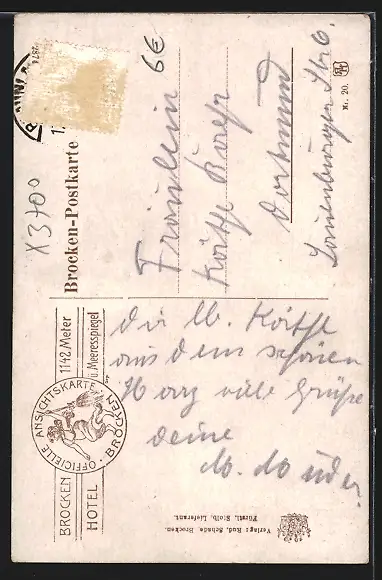 Brocken-Postkarte
Fräulein
Käthe
Dortmund
Nr. 20.
6€
X3400
1142 Meter
ü. Meeresspiegel
OFFICIELLE ANSICHTSKARTE BROCKEN
BROCKEN
HOTEL
Dir lb. Käthe
aus dem schönen
Harz viele Grüße
deine
Verlag: Rud. Schade, Brocken.
Fürstl. Stolb. Lieferant.